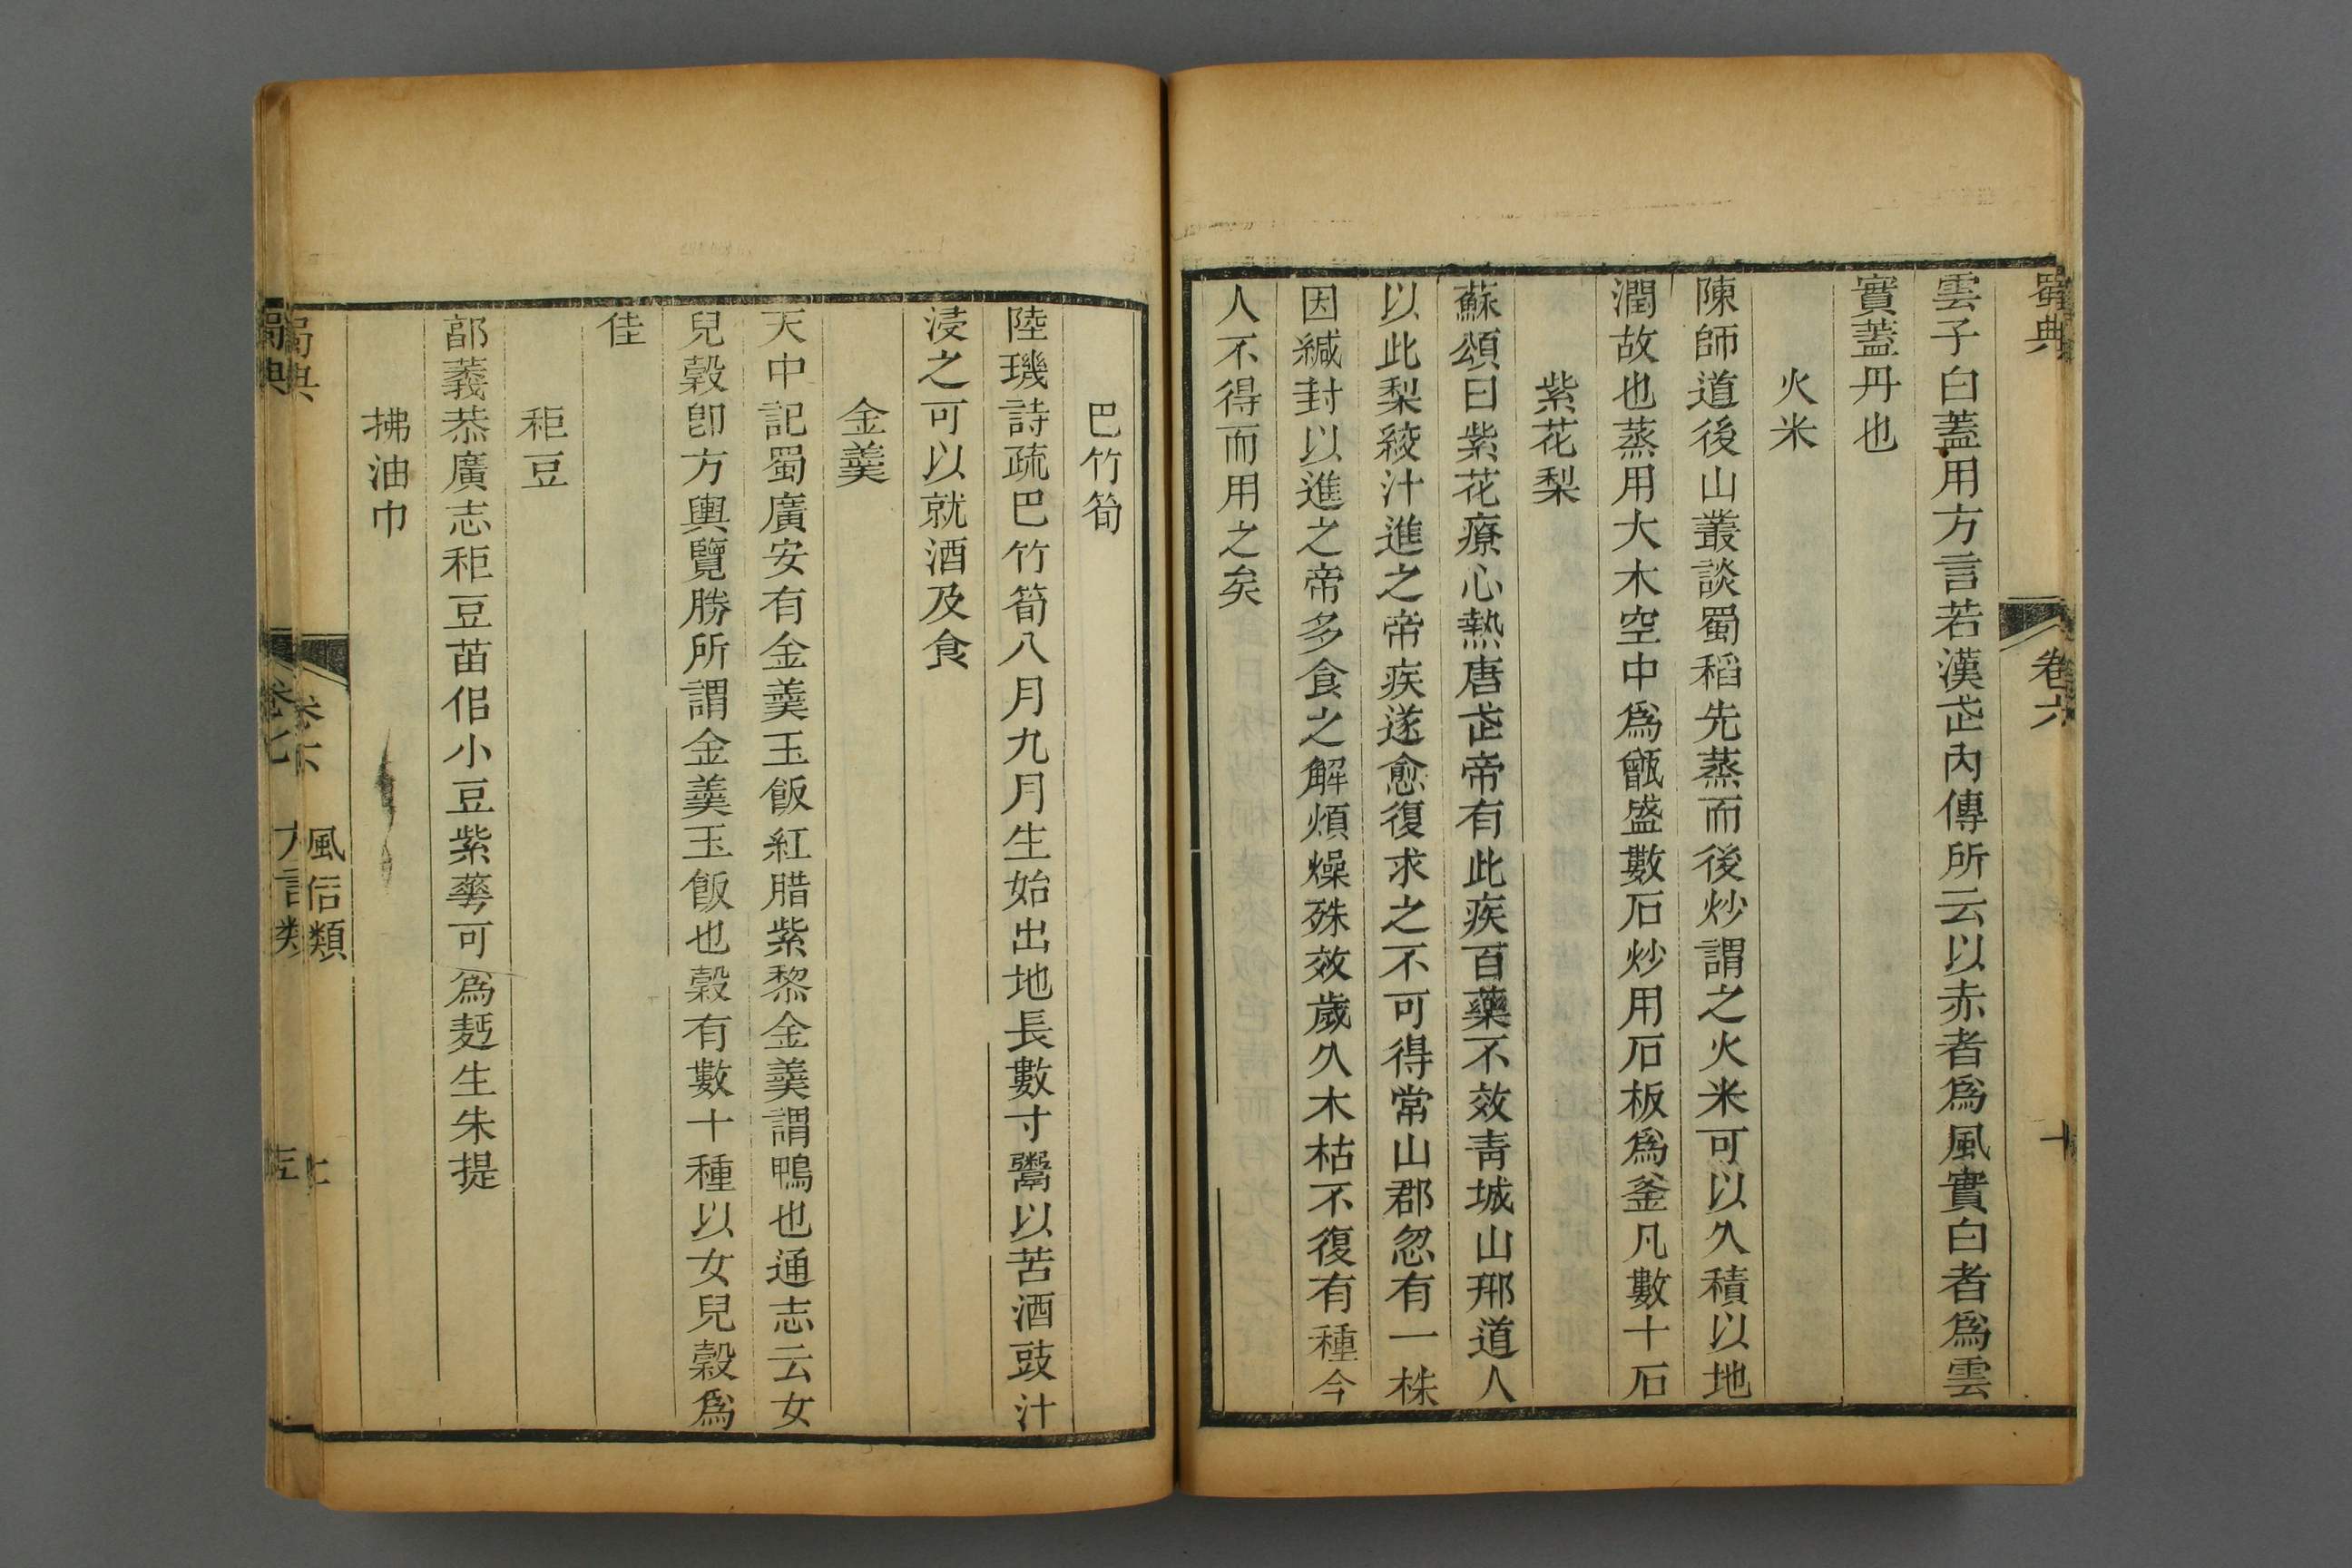 蜀典 卷六 十
雲子白蓋用方言若漢武內傳所云以赤者爲風實白者爲雲
實蓋丹也
火米
陳師道後山叢談蜀稻先蒸而後炒謂之火米可以久積以地
潤故也蒸用大木空中爲甑盛數石炒用石板爲釜凡數十石
紫花梨
蘇頌曰紫花療心熱唐武帝有此疾百藥不效青城山邢道人
以此梨絞汁進之帝疾遂愈復求之不可得常山郡忽有一株
因緘封以進之帝多食之解煩燥殊效歲久木枯不復有種今
人不得而用之矣
巴竹筍
陸璣詩疏巴竹筍八月九月生始出地長數寸鬻以苦酒豉汁
浸之可以就酒及食
金羹
天中記蜀廣安有金羹玉飯紅腊紫黎金羹謂鴨也通志云女
兒穀卽方輿覽勝所謂金羹玉飯也穀有數十種以女兒穀爲
佳
秬豆
郭義恭廣志秬豆苗佀小豆紫蕚可爲麪生朱提
拂油巾
蜀典 風俗類
蜀典 卷七 方言類